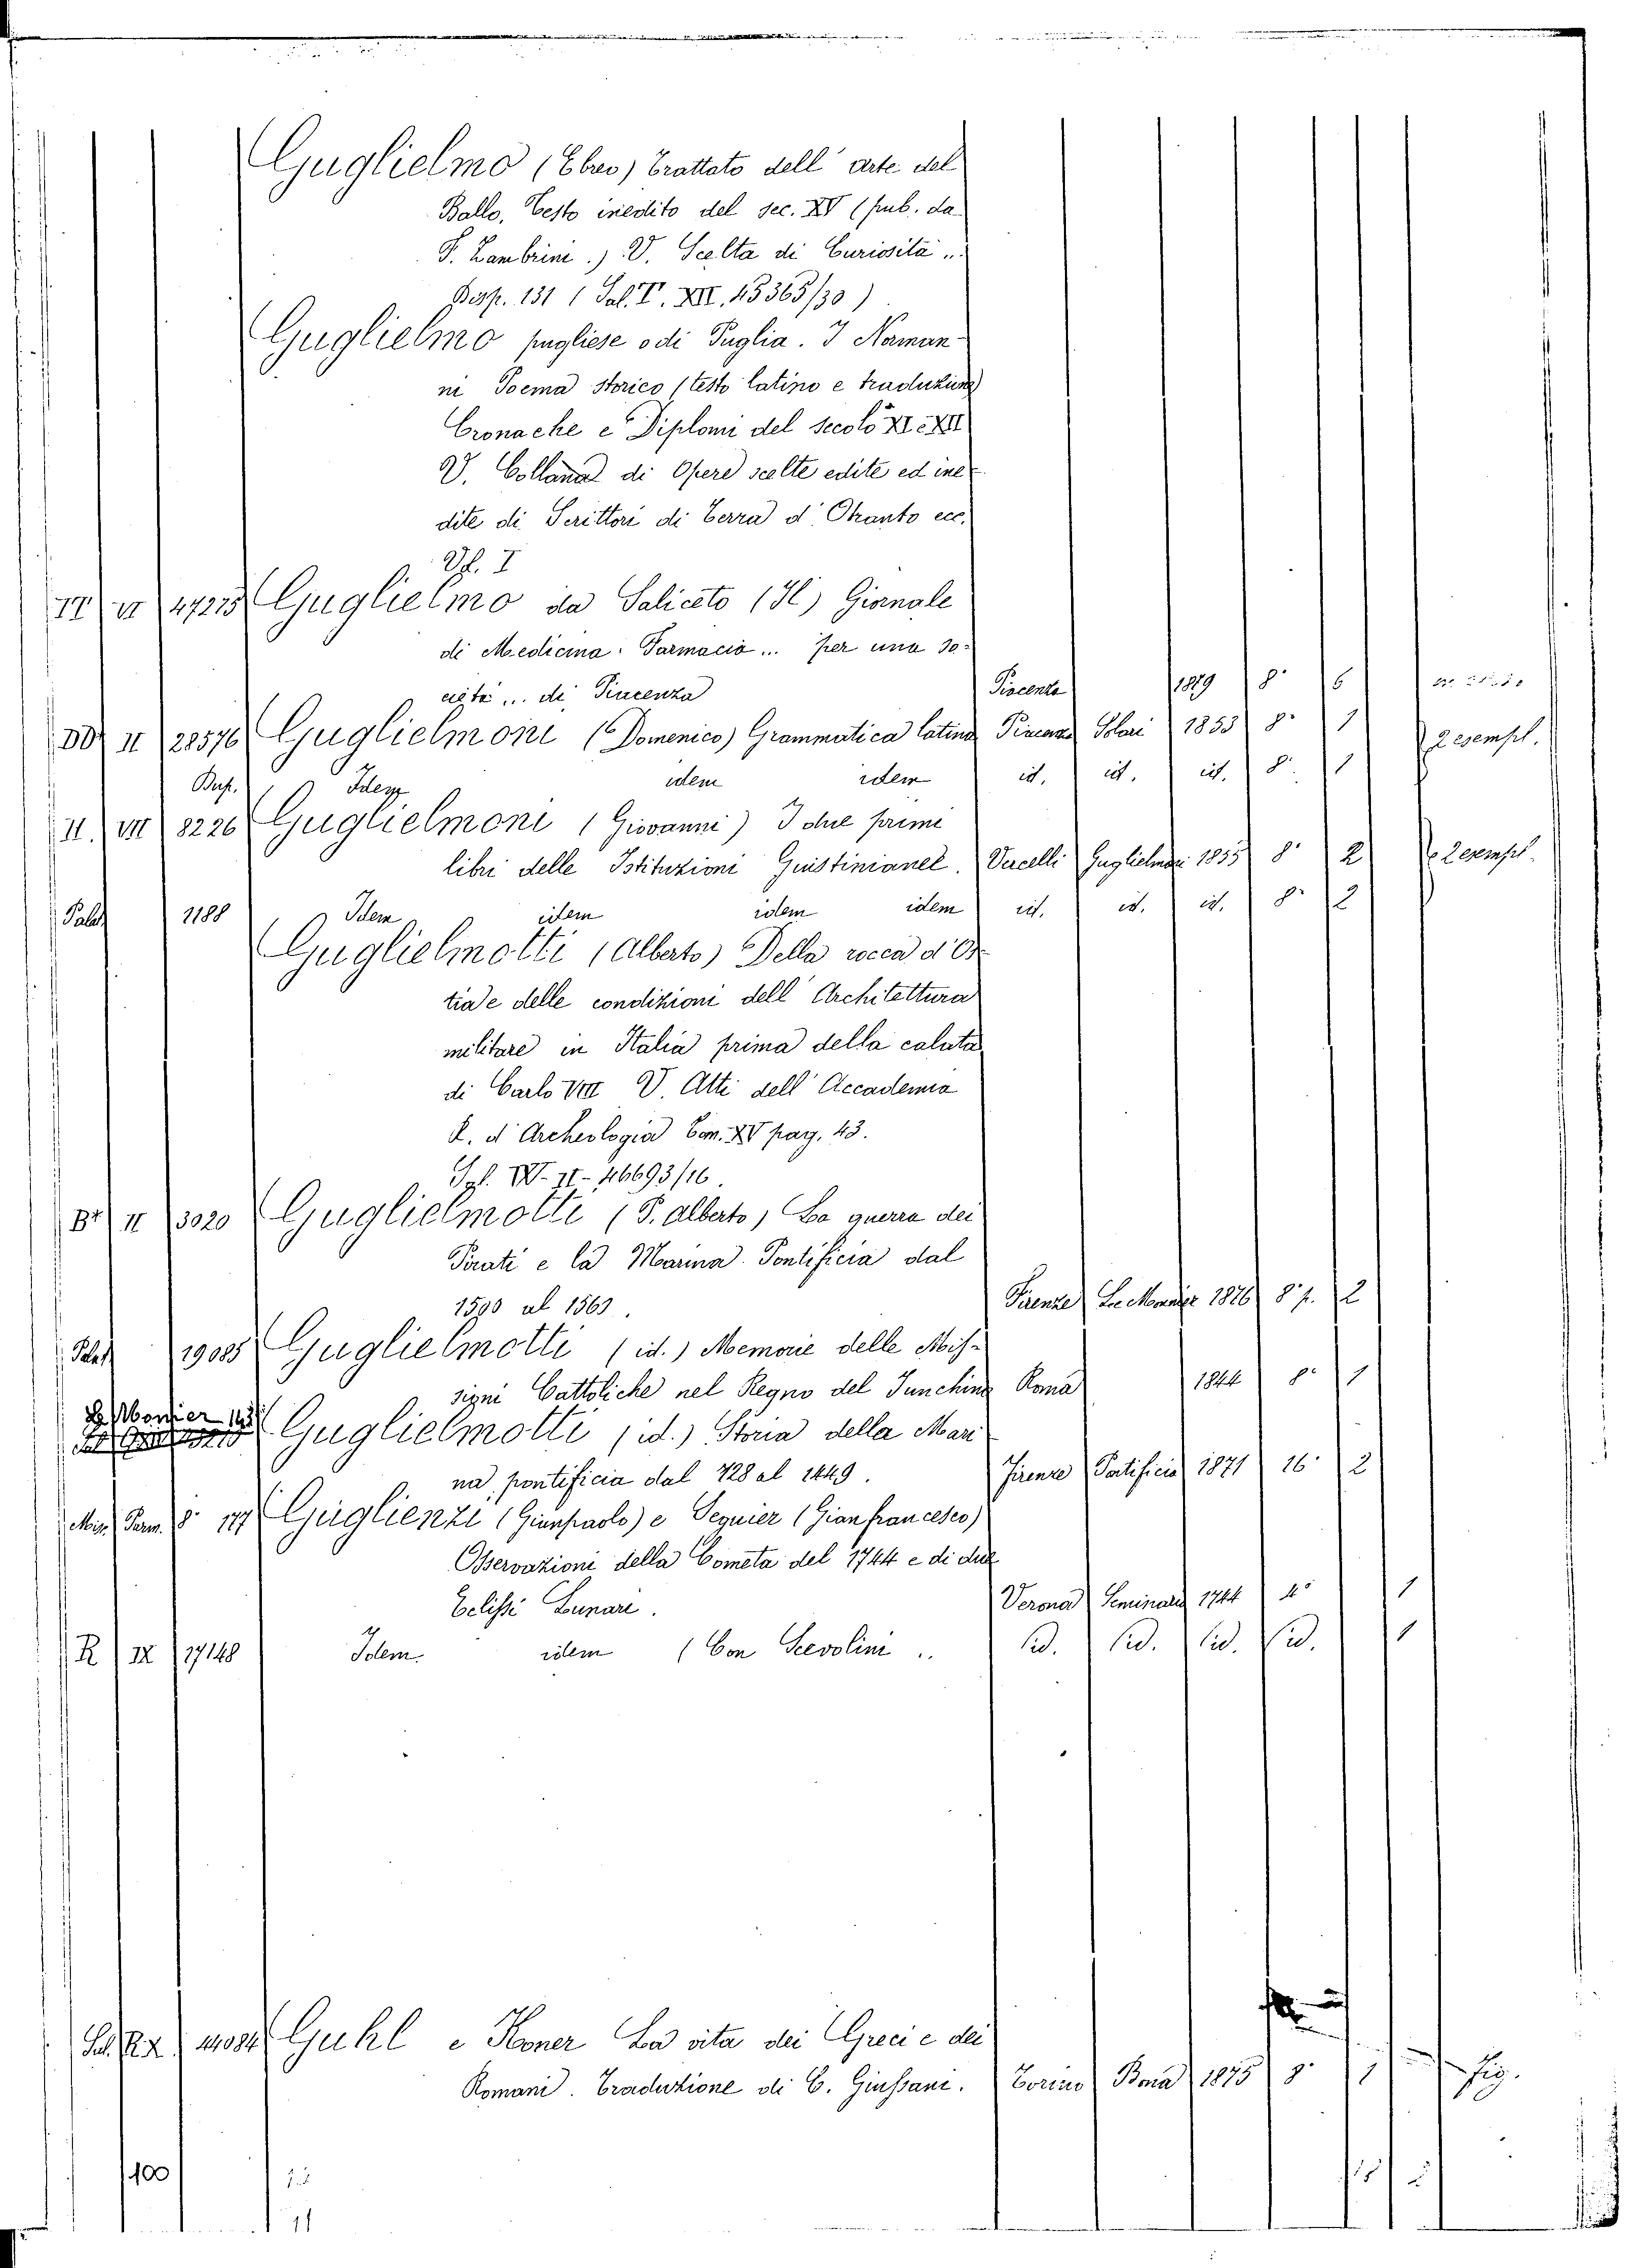 Guglielmo (Ebreo) Trattato dell' arte del
Ballo, Testo inedito del sec. XV (pub. da
F. Zambrini.) V. Scelta di Curiosità ..
Disp. 131 ( Sal. T. XII. 45365/30)
Guglielmo pugliese o di Puglia. I Norman-
ni Poema storico (testo latino e traduzione)
Cronache e Diplomi del secolo XI e XII
V. Collana di Opere scelte edite ed ine-
dite di Scrittori di Terra d' Otranto ecc.
Vol. I
TT VI 47275 Guglielmo da Saliceto (Il) Giornale
di Medicina. Farmacia... per una so-
cietà ... di Piacenza Piacenza 1879 8° 6
DD II 28576 Guglielmoni (Domenico) Grammatica latina Piacenza Solari 1853 8° 1 2 esempl.
Dup. Idem idem idem id. id. id. 8° 1
II. VII 8226 Guglielmoni (Giovanni) I due primi
libri delle Istituzioni Giustinianee. Vercelli Guglielmoni 1855 8° 2 2 esempl.
Palat 1188 Idem idem idem idem id. id. id. 8° 2
Guglielmotti (Alberto) Della rocca d' Os-
tia e delle condizioni dell' Architettura
militare in Italia prima della calata
di Carlo VIII V. Atti dell' Accademia
R. d' Archeologia Tom. XV pag. 43.
W. II - 46693/16.
B* II 3020 Guglielmotti (P. Alberto) La guerra dei
Pirati e la Marina Pontificia dal
1500 al 1560. Firenze Le Monnier 1876 8° p. 2
Palat 19085 Guglielmotti (id.) Memorie delle Mis-
sioni Cattoliche nel Regno del Tunchino Roma 1844 8° 1
Le Monier Guglielmotti (id.) Storia della Mari
na pontificia dal 728 al 1449. Firenze Pontificia 1871 16° 2
Mis. Parm. 8° 177 Guglienzi (Gianpaolo) e Seguier (Gianfrancesco)
Osservazioni della Cometa del 1744 e di due
Eclissi Lunari. Verona Seminario 1744 4° 1
R IX 17148 Idem. idem (Con Scevolini .. id. id. id. id. 1
Sal. R. X 44084 Guhl e Koner La vita dei Greci e dei
Romani. Traduzione di C. Giussani. Torino Bona 1875 8° 1 fig.
100
11